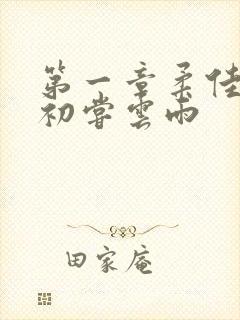 第一章柔佳
初嘗雲雨
田家庵